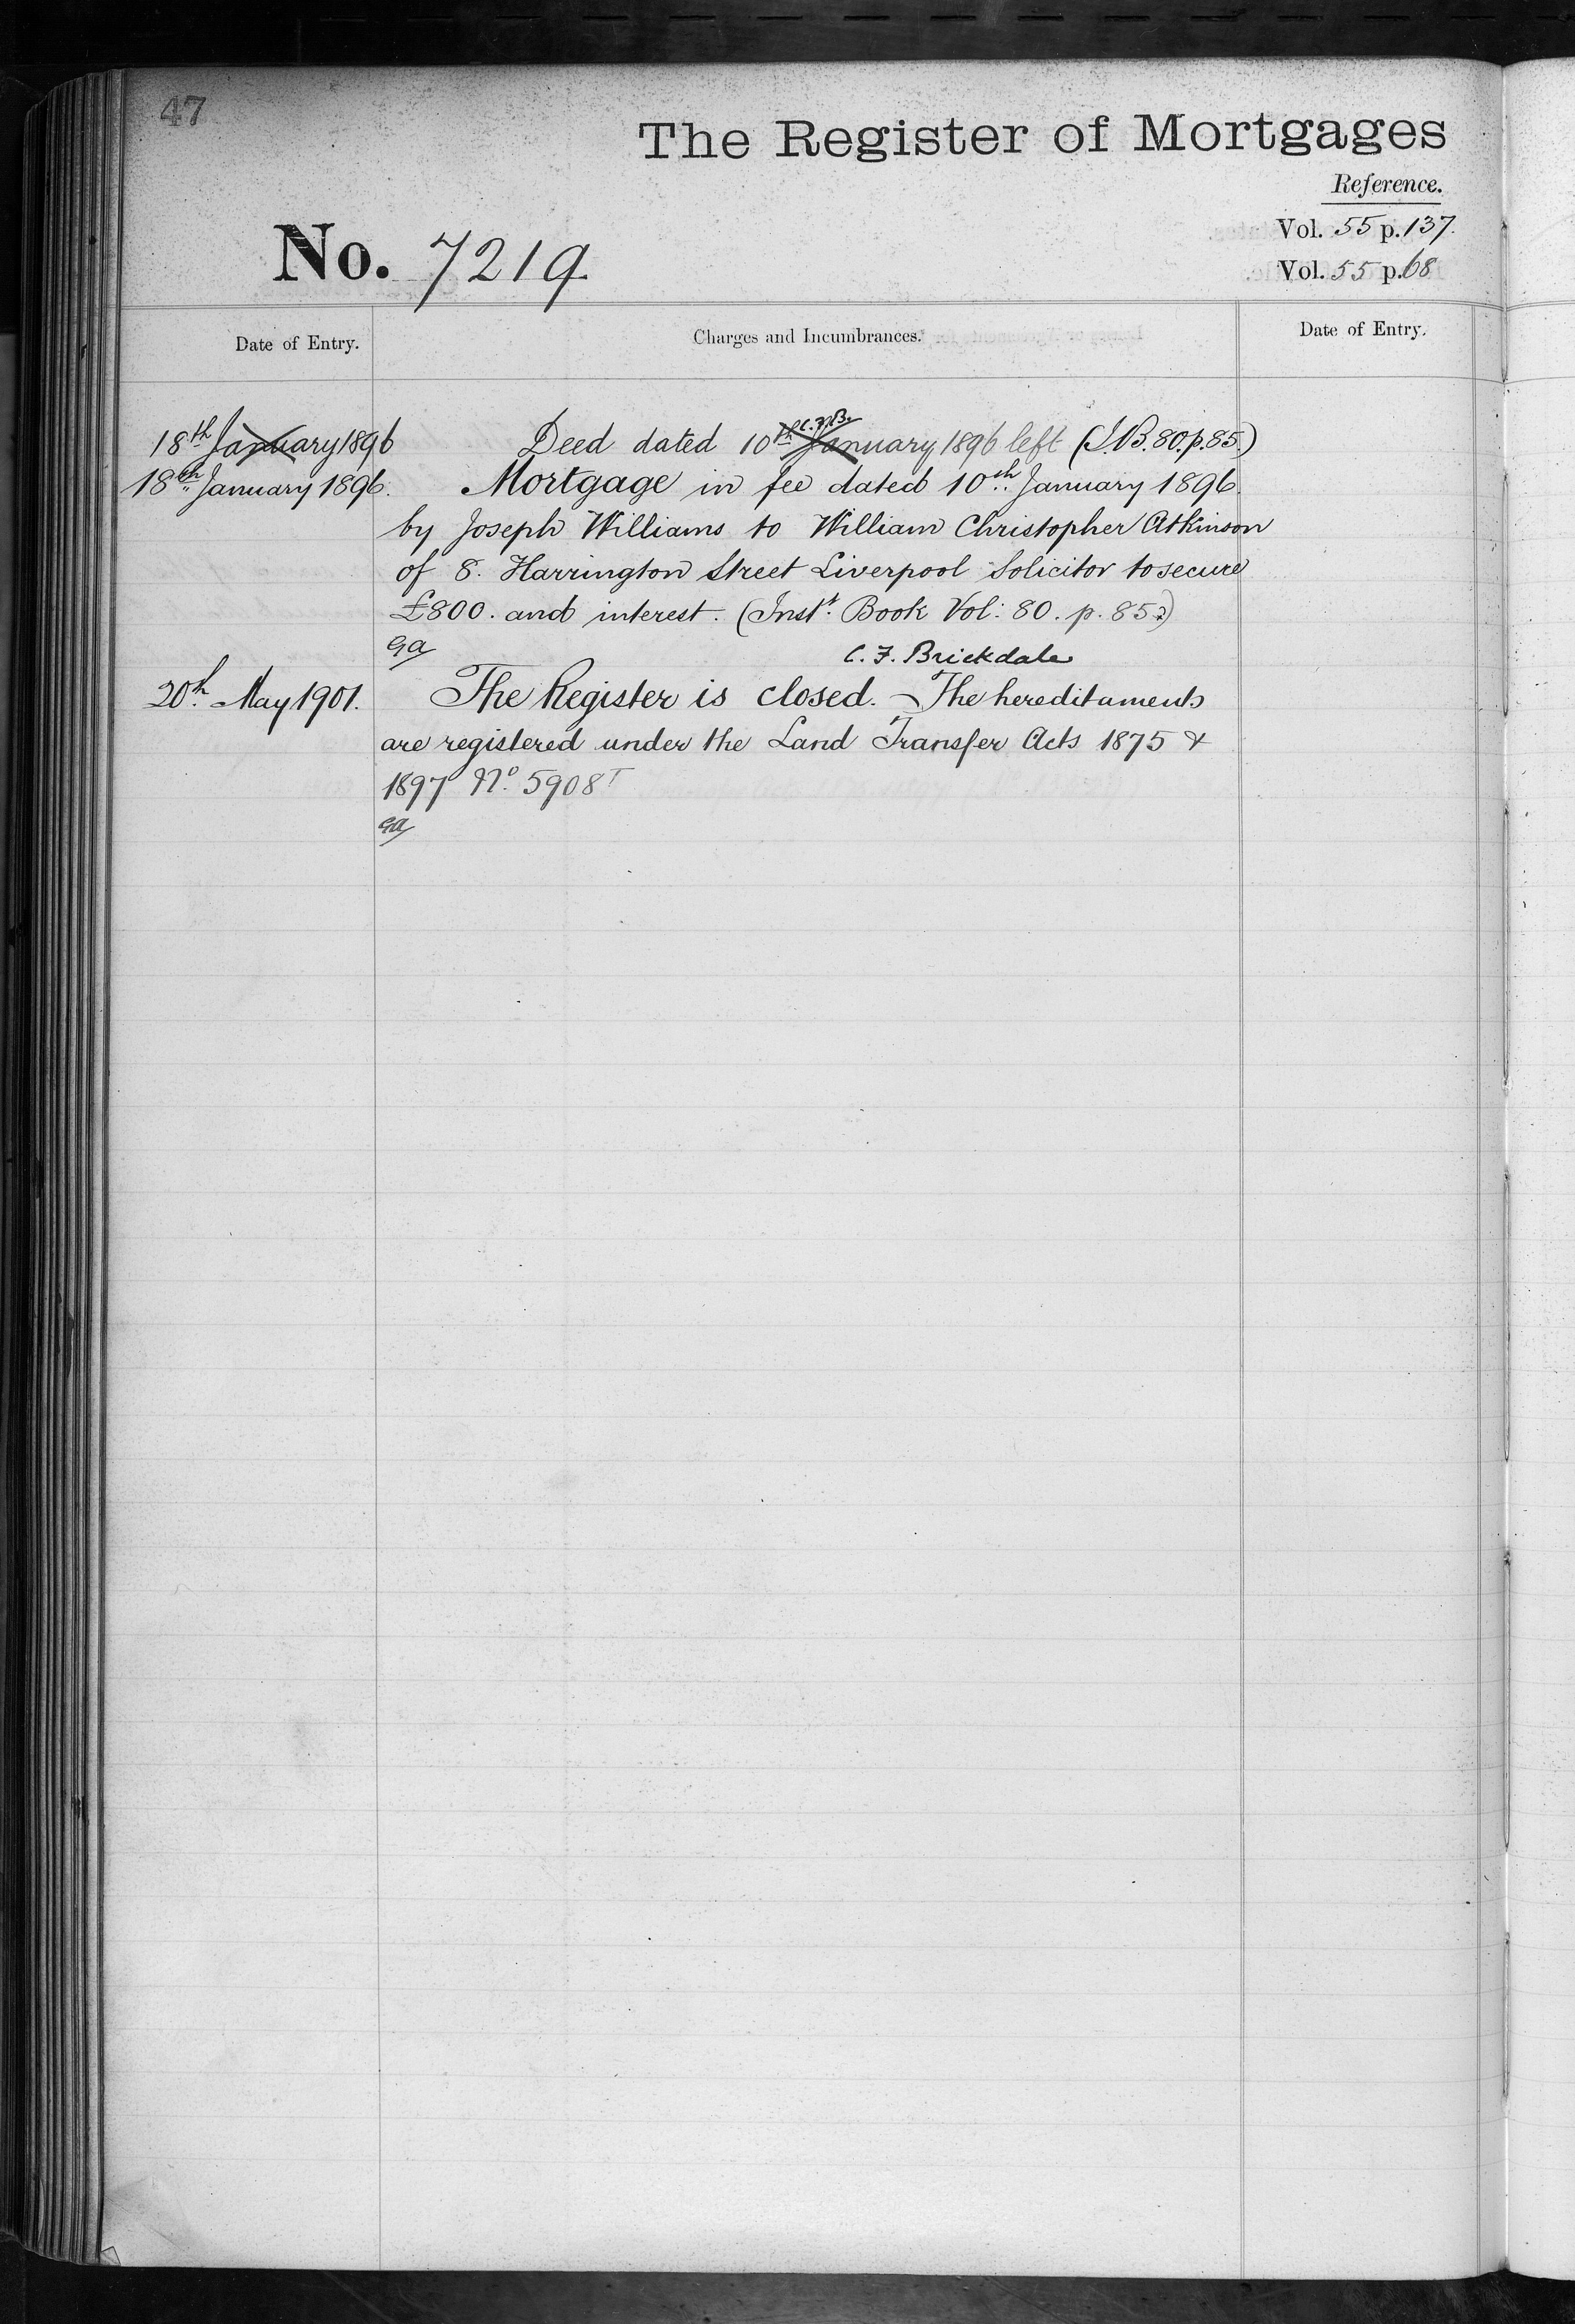 47
The Register of Mortgages
Reference.
No. 7219.
Vol. 55 p. 137.
Vol. 55 p. 68
Date of Entry.
Charges and Incumbrances.
Date of Entry.
C.F.B.
18th January 1896 Deed dated 10th January 1896 left (I.B. 80. p. 85.)
18th January 1896. Mortgage in fee dated 10th January 1896.
by Joseph Williams to William Christopher Atkinson
of 8. Harrington Street Liverpool Solicitor to secure
£800. and interest. (Instt. Book Vol: 80. p. 85.)
Ga
C. F. Brickdale
20th May 1901. The Register is closed. - The hereditaments
are registered under the Land Transfer Acts 1875 &
1897 No. 5908T
Ga